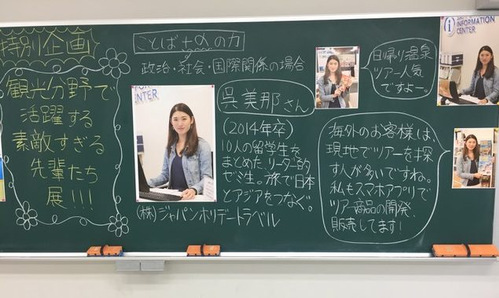 特別企画
観光分野で
活躍する
素敵すぎる
先輩たち
展!!!
ことば+αの力
政治・社会・国際関係の場合
呉美那さん
(2014年卒)
10人の留学生を
まとめたリーダー的
ゼミ生。旅で日本
とアジアをつなぐ。
(株)ジャパンホリデートラベル
日帰り温泉
ツアー人気
ですよー
海外のお客様は
現地でツアーを探
す人が多いですね。
私もスマホアプリで
ツアー商品の開発、
販売してます!
CENTER
INFORMATION
CENTER